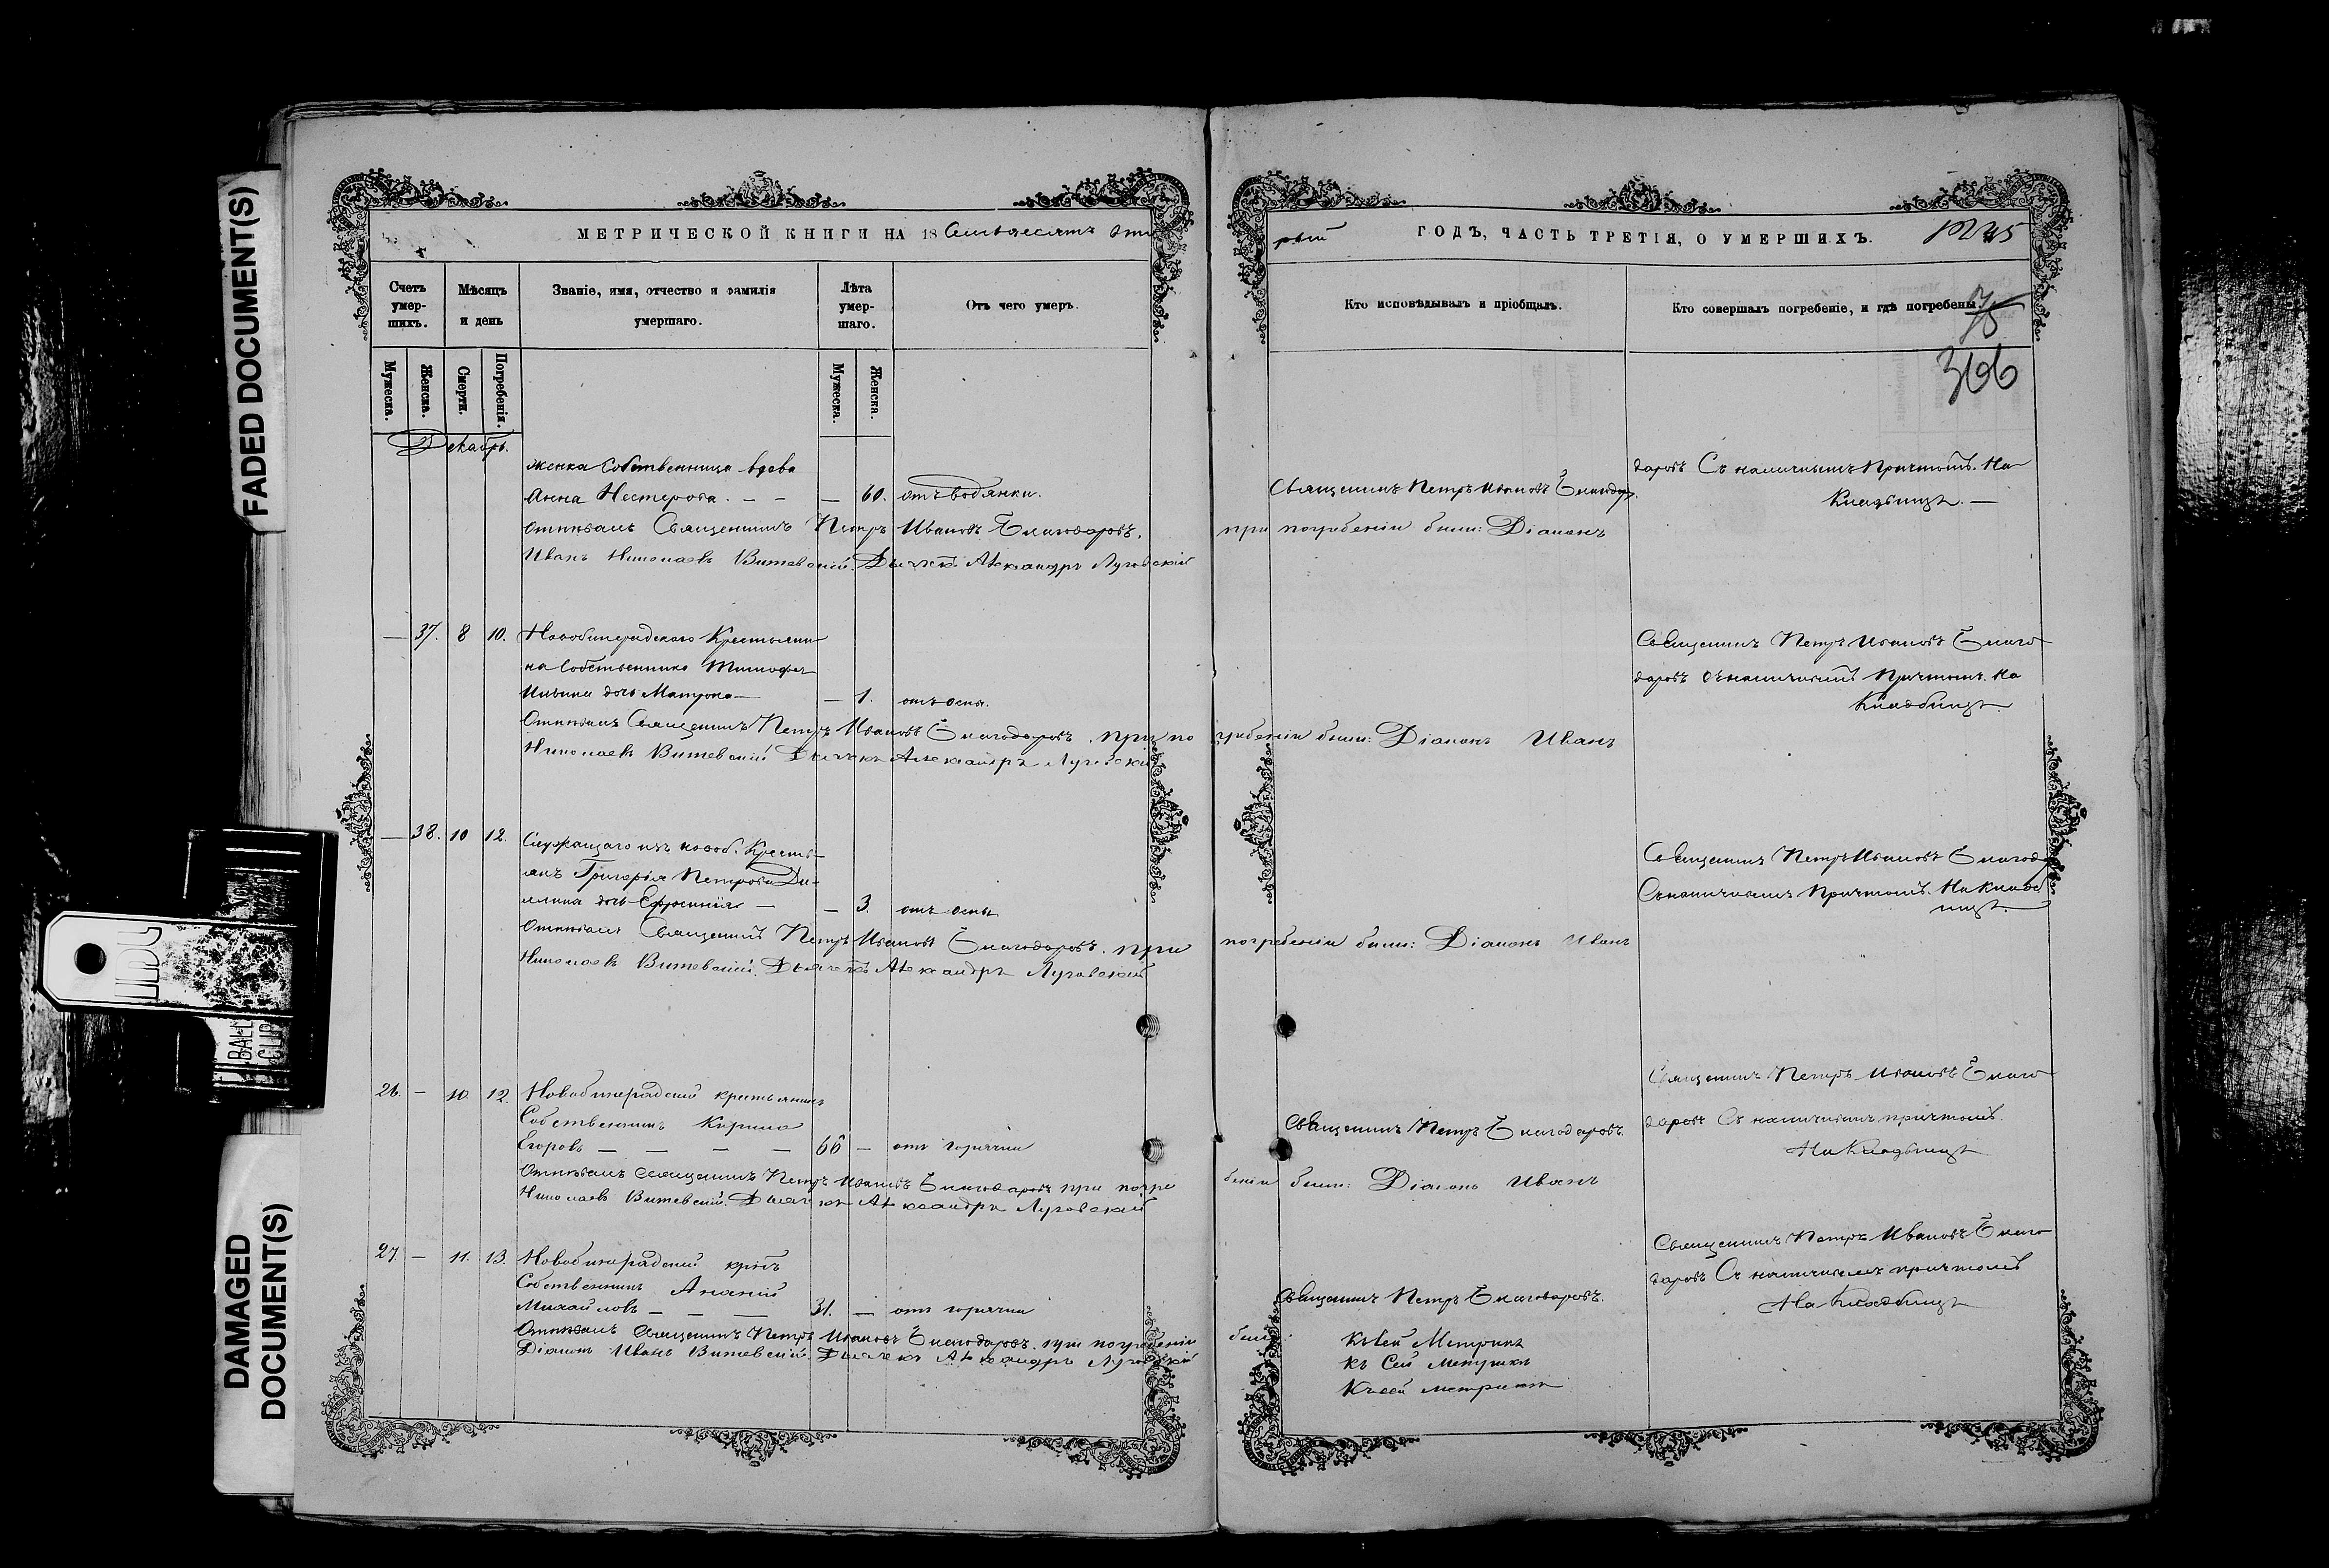 FADED DOCUMENT(S)
DAMAGED
DOCUMENT(S)
МЕТРИЧЕСКОЙ КНИГИ НА 18 Семьдесятъ вто
Счетъ умер-шихъ.
Мѣсяцъ и день
Званіе, имя, отчество и фамилія умершаго.
Лѣта умер-шаго.
Отъ чего умеръ.
Мужеска.
Женска.
Смерти.
Погребенія.
Мужеска.
Женска.
Декабрь.
женка собственница вдова
Анна Нестерова. — — — 60. отъ водянки.
Отпѣвалъ Священникъ Петръ Ивановъ Благодаровъ.
Иванъ Николаевъ Витевскій. Дьячекъ Александръ Луговскій
— 37. 8 10. Крестьяни
на собственника Тимофея
Ильина дочь Матрона — — 1. отъ оспы.
Отпѣвалъ Священникъ Петръ Ивановъ Благодаровъ. при по
Николаевъ Витевскій Дьячекъ Александръ Луговскій
— 38. 10 12. Служащаго изъ новоб. Кресть-
янъ Григорія Петрова
дочь Ефросинія — — 3. отъ оспы
Отпѣвалъ Священникъ Петръ Ивановъ Благодаровъ. при
Николаевъ Витевскій. Дьячекъ Александръ Луговскій
26. — 10. 12. крестьянинъ
Собственникъ
Егоровъ — — — — 66 — отъ горячки
Отпѣвалъ Священникъ Петръ Ивановъ Благодаровъ при погре
Николаевъ Витевскій. Дьячекъ Александръ Луговскій
27. — 11. 13.
Собственникъ Ананій
Михайловъ — — — 31. — отъ горячки
Отпѣвалъ Священникъ Петръ Ивановъ Благодаровъ. при погребеніи
Діаконъ Иванъ Витевскій. Дьячекъ Александръ Луговскій
рый ГОДЪ, ЧАСТЬ ТРЕТІЯ, О УМЕРШИХЪ.
Кто исповѣдывалъ и пріобщалъ.
Кто совершалъ погребеніе, и гдѣ погребены.
366
даровъ Съ наличнымъ Причтомъ. На
Священникъ Петръ Ивановъ Благодар.
Кладбищѣ. —
при погребеніи были: Діаконъ
Священникъ Петръ Ивановъ Благо
даровъ съ наличнымъ Причтомъ. На
Кладбищѣ.
гребеніи были: Діаконъ Иванъ
Священникъ Петръ Ивановъ Благод
Съ наличнымъ Причтомъ. На Кладб
ищѣ.
погребеніи были: Діаконъ Иванъ
Священникъ Петръ Ивановъ Благо
Священникъ Петръ Благодаровъ.
даровъ Съ наличнымъ причтомъ.
На Кладбищѣ
беніи были: Діаконъ Иванъ
Священникъ Петръ Ивановъ Благо
даровъ Съ наличнымъ причтомъ
Священникъ Петръ Благодаровъ.
На Кладбищѣ
были:
Къ сей Метрикѣ
къ Сей Метрикѣ
Къ сей метрикѣ